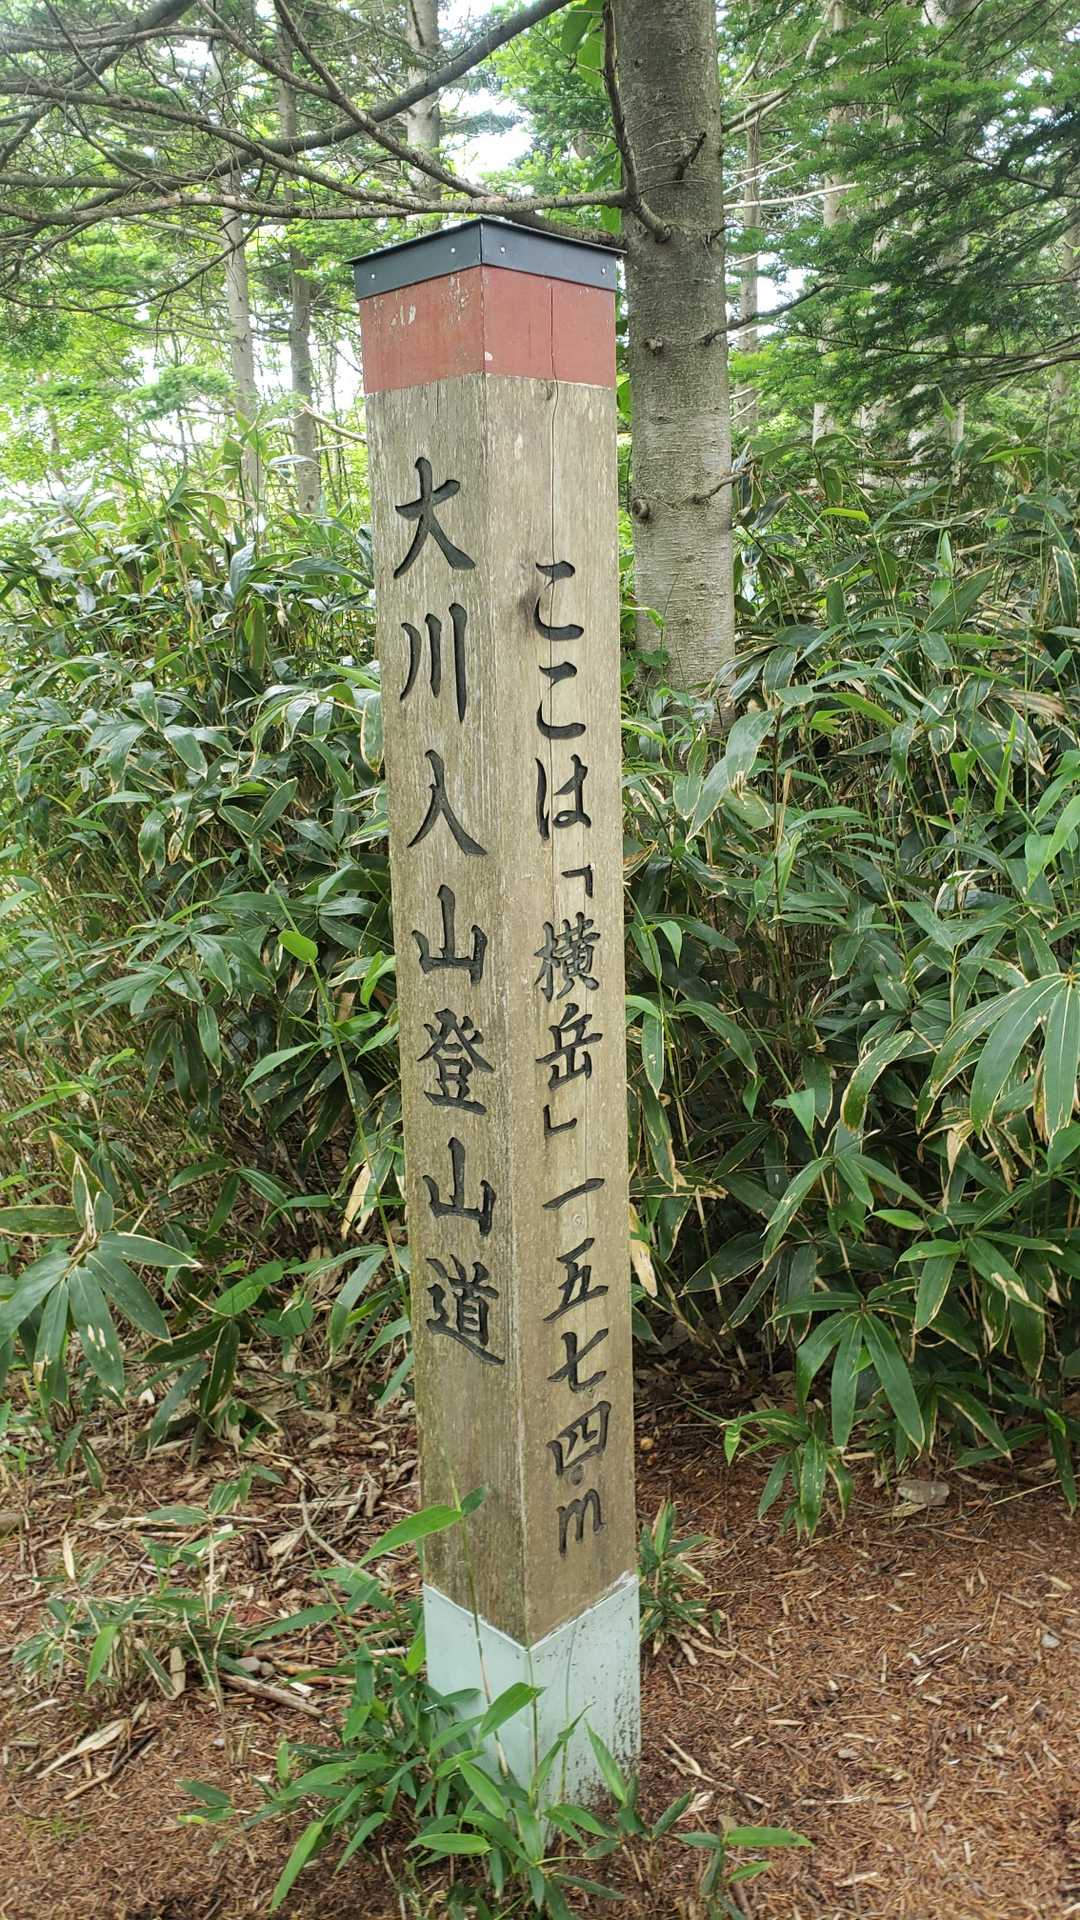 大川入山登山道
ここは「横岳」一五七四m